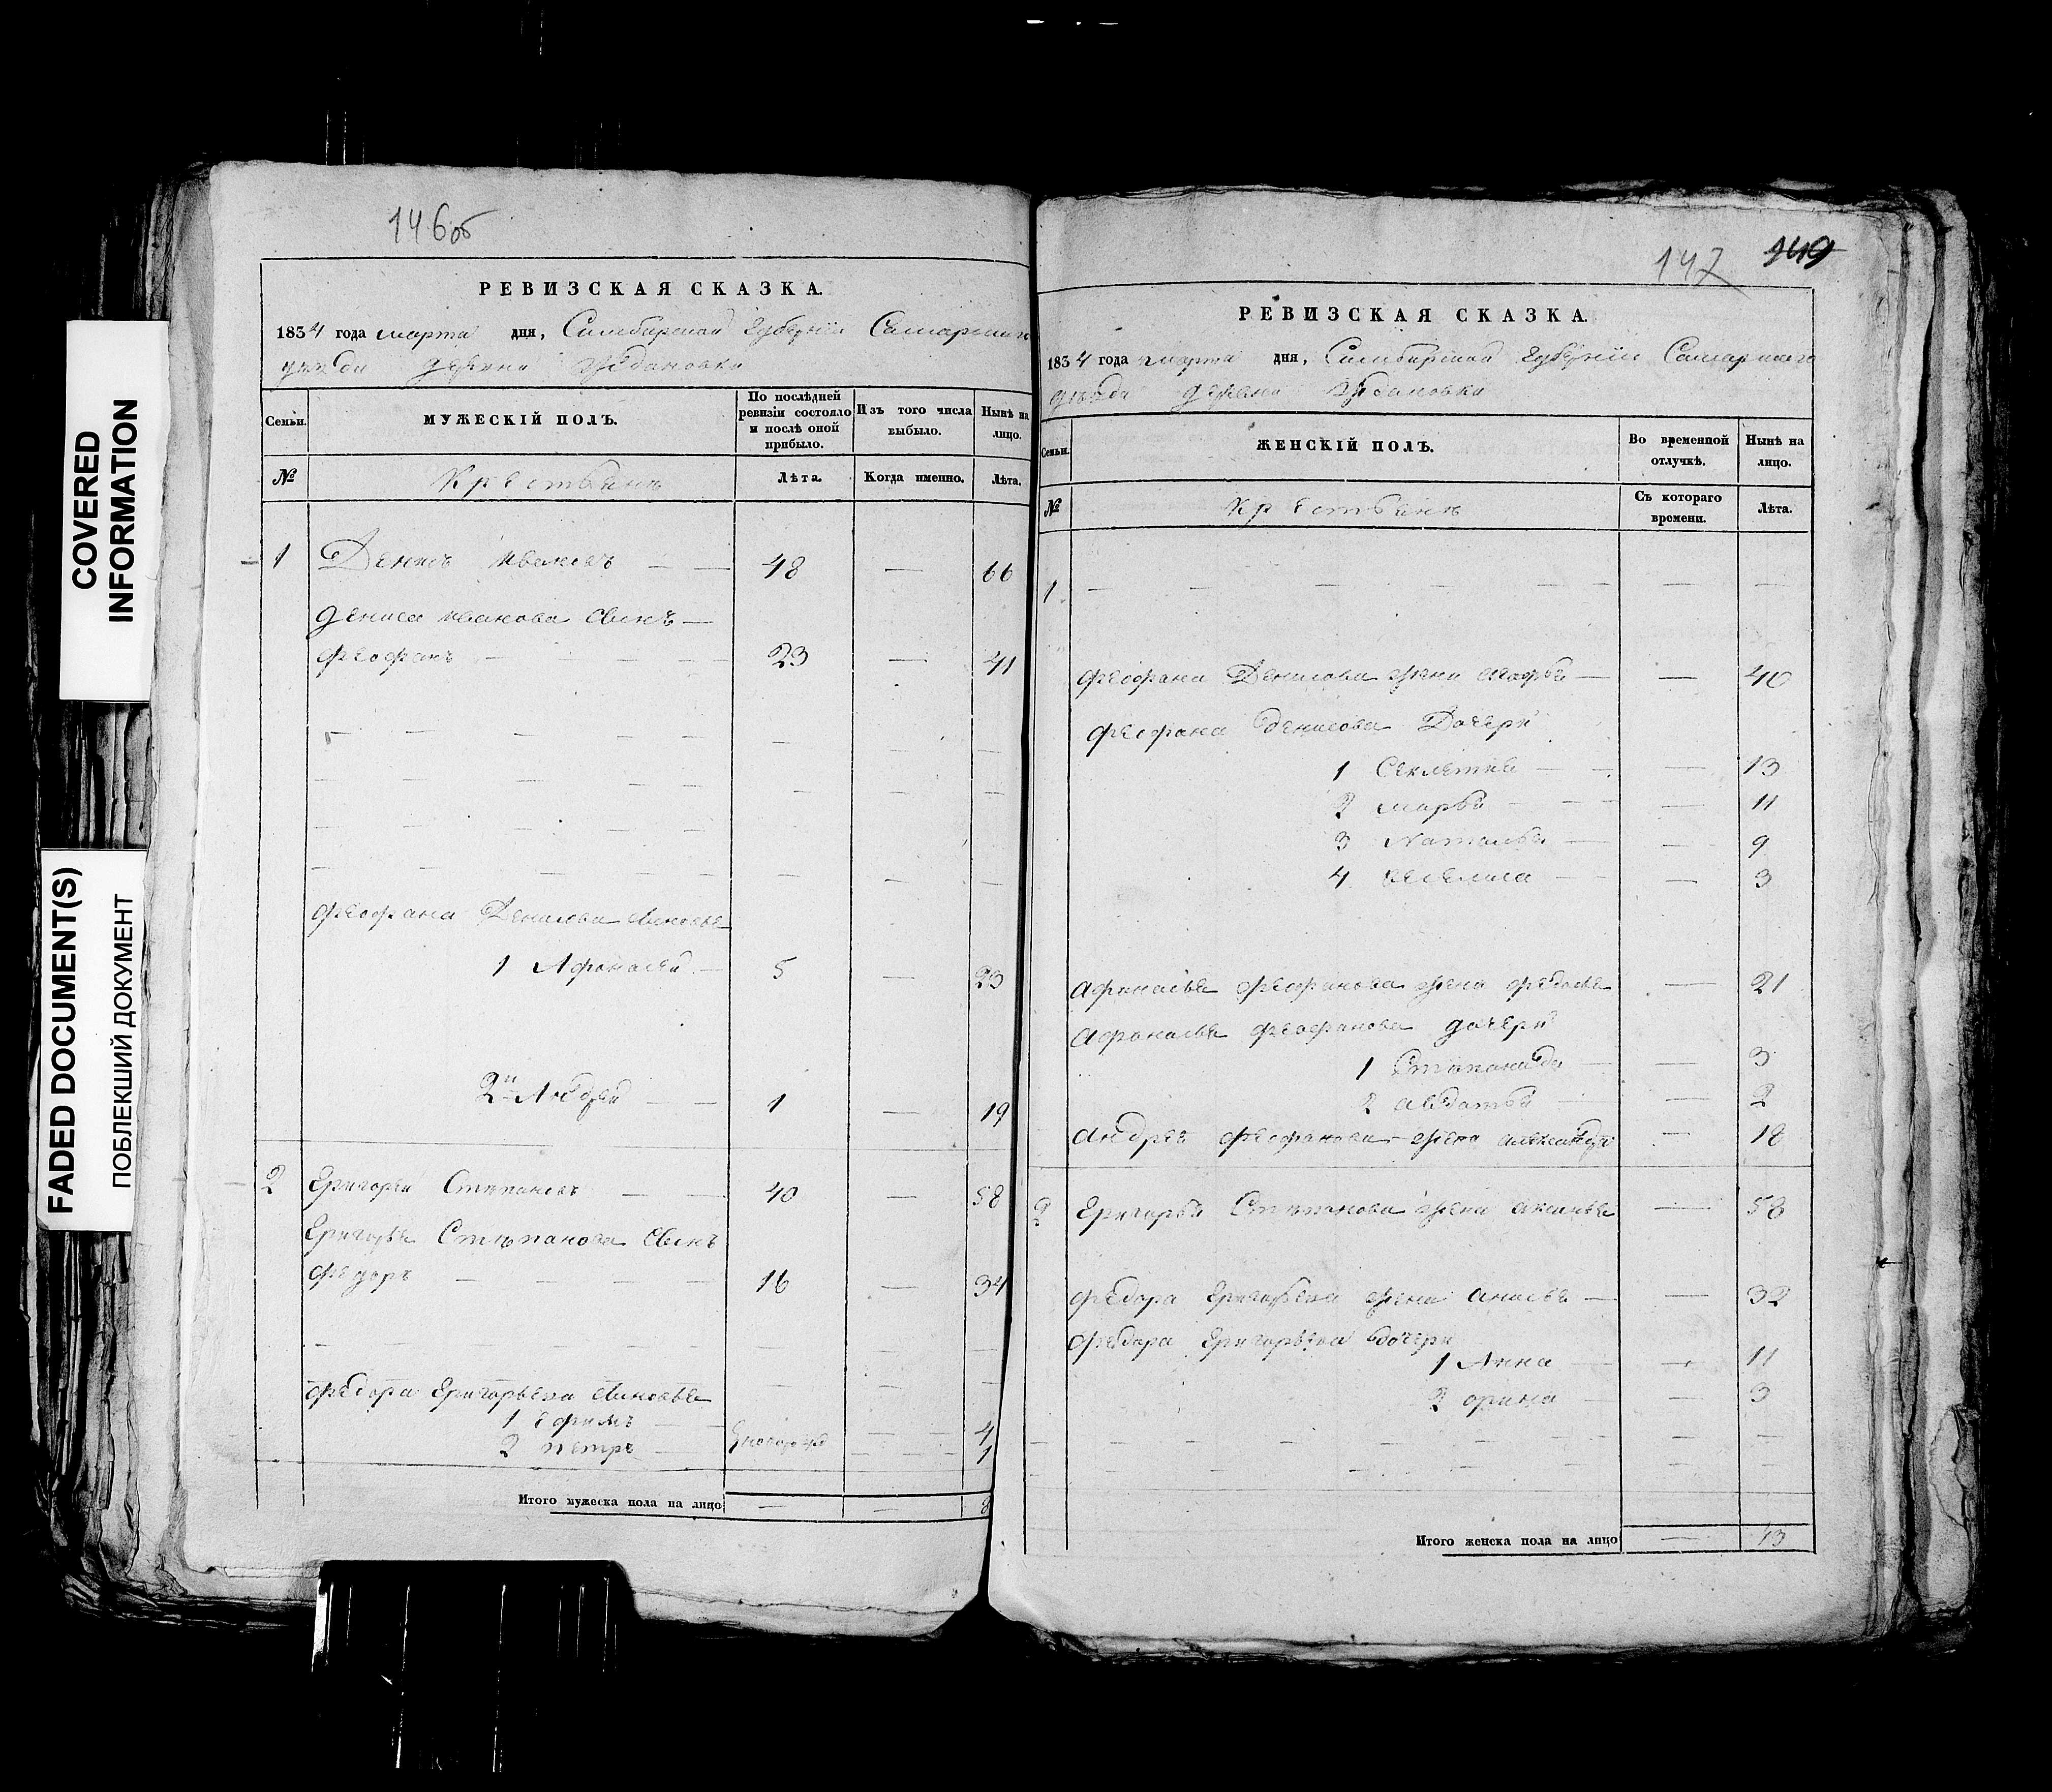 COVERED
INFORMATION
FADED DOCUMENT(S)
ПОБЛЕКШИЙ ДОКУМЕНТ
146об
РЕВИЗСКАЯ СКАЗКА.
1834 года марта дня, Симбирской губернии Самарскаго
уезда деревни Ждановки
Семьи.
МУЖЕСКІЙ ПОЛЪ.
По послѣдней ревизіи состояло и послѣ оной прибыло.
Изъ того числа выбыло.
Нынѣ на лицо.
№
Крестьянъ
Лѣта.
Когда именно.
Лѣта.
1 Денисъ Ивановъ — 48 — 66
Дениса Иванова сынъ —
Феофанъ — 23 — 41
Феофана Денисова сыновья
1 Афонасей — 5 — 23
2й Андрей — 1 — 19
2 Григорьи Степановъ — 40 — 58
Григорья Степанова сынъ
Федоръ — 16 — 34
Федора Григорьева сыновья
1 Ефимъ — 4
2 петръ — новорожд — 1
Итого мужеска пола на лицо — — 8
147 149
РЕВИЗСКАЯ СКАЗКА.
1834 года марта дня, Симбирской губернии Самарскаго
уезда деревни Ждановки
Семьи.
ЖЕНСКІЙ ПОЛЪ.
Во временной отлучкѣ.
Нынѣ на лицо.
№
Крестьянъ
Съ котораго времени.
Лѣта.
1 — — — — —
Феофана Денисова жена марфа — — 40
Феофана Денисова Дочери
1 Секлетия — — 13
2 марья — — 11
3 Наталья — — 9
4 — — 3
Афонасья Феофанова жена федосья — 21
Афонасья Феофанова дочери
1 Степонида — 3
2 авдотья — — 2
Андрея Феофанова жена александра — 18
2 Григорья Степанова жена аксинья — 58
Федора Григорьева жена анисья — — 32
Федора Григорьева дочери
1 Анна — — 11
2 орина — 3
Итого женска пола на лицо — 13